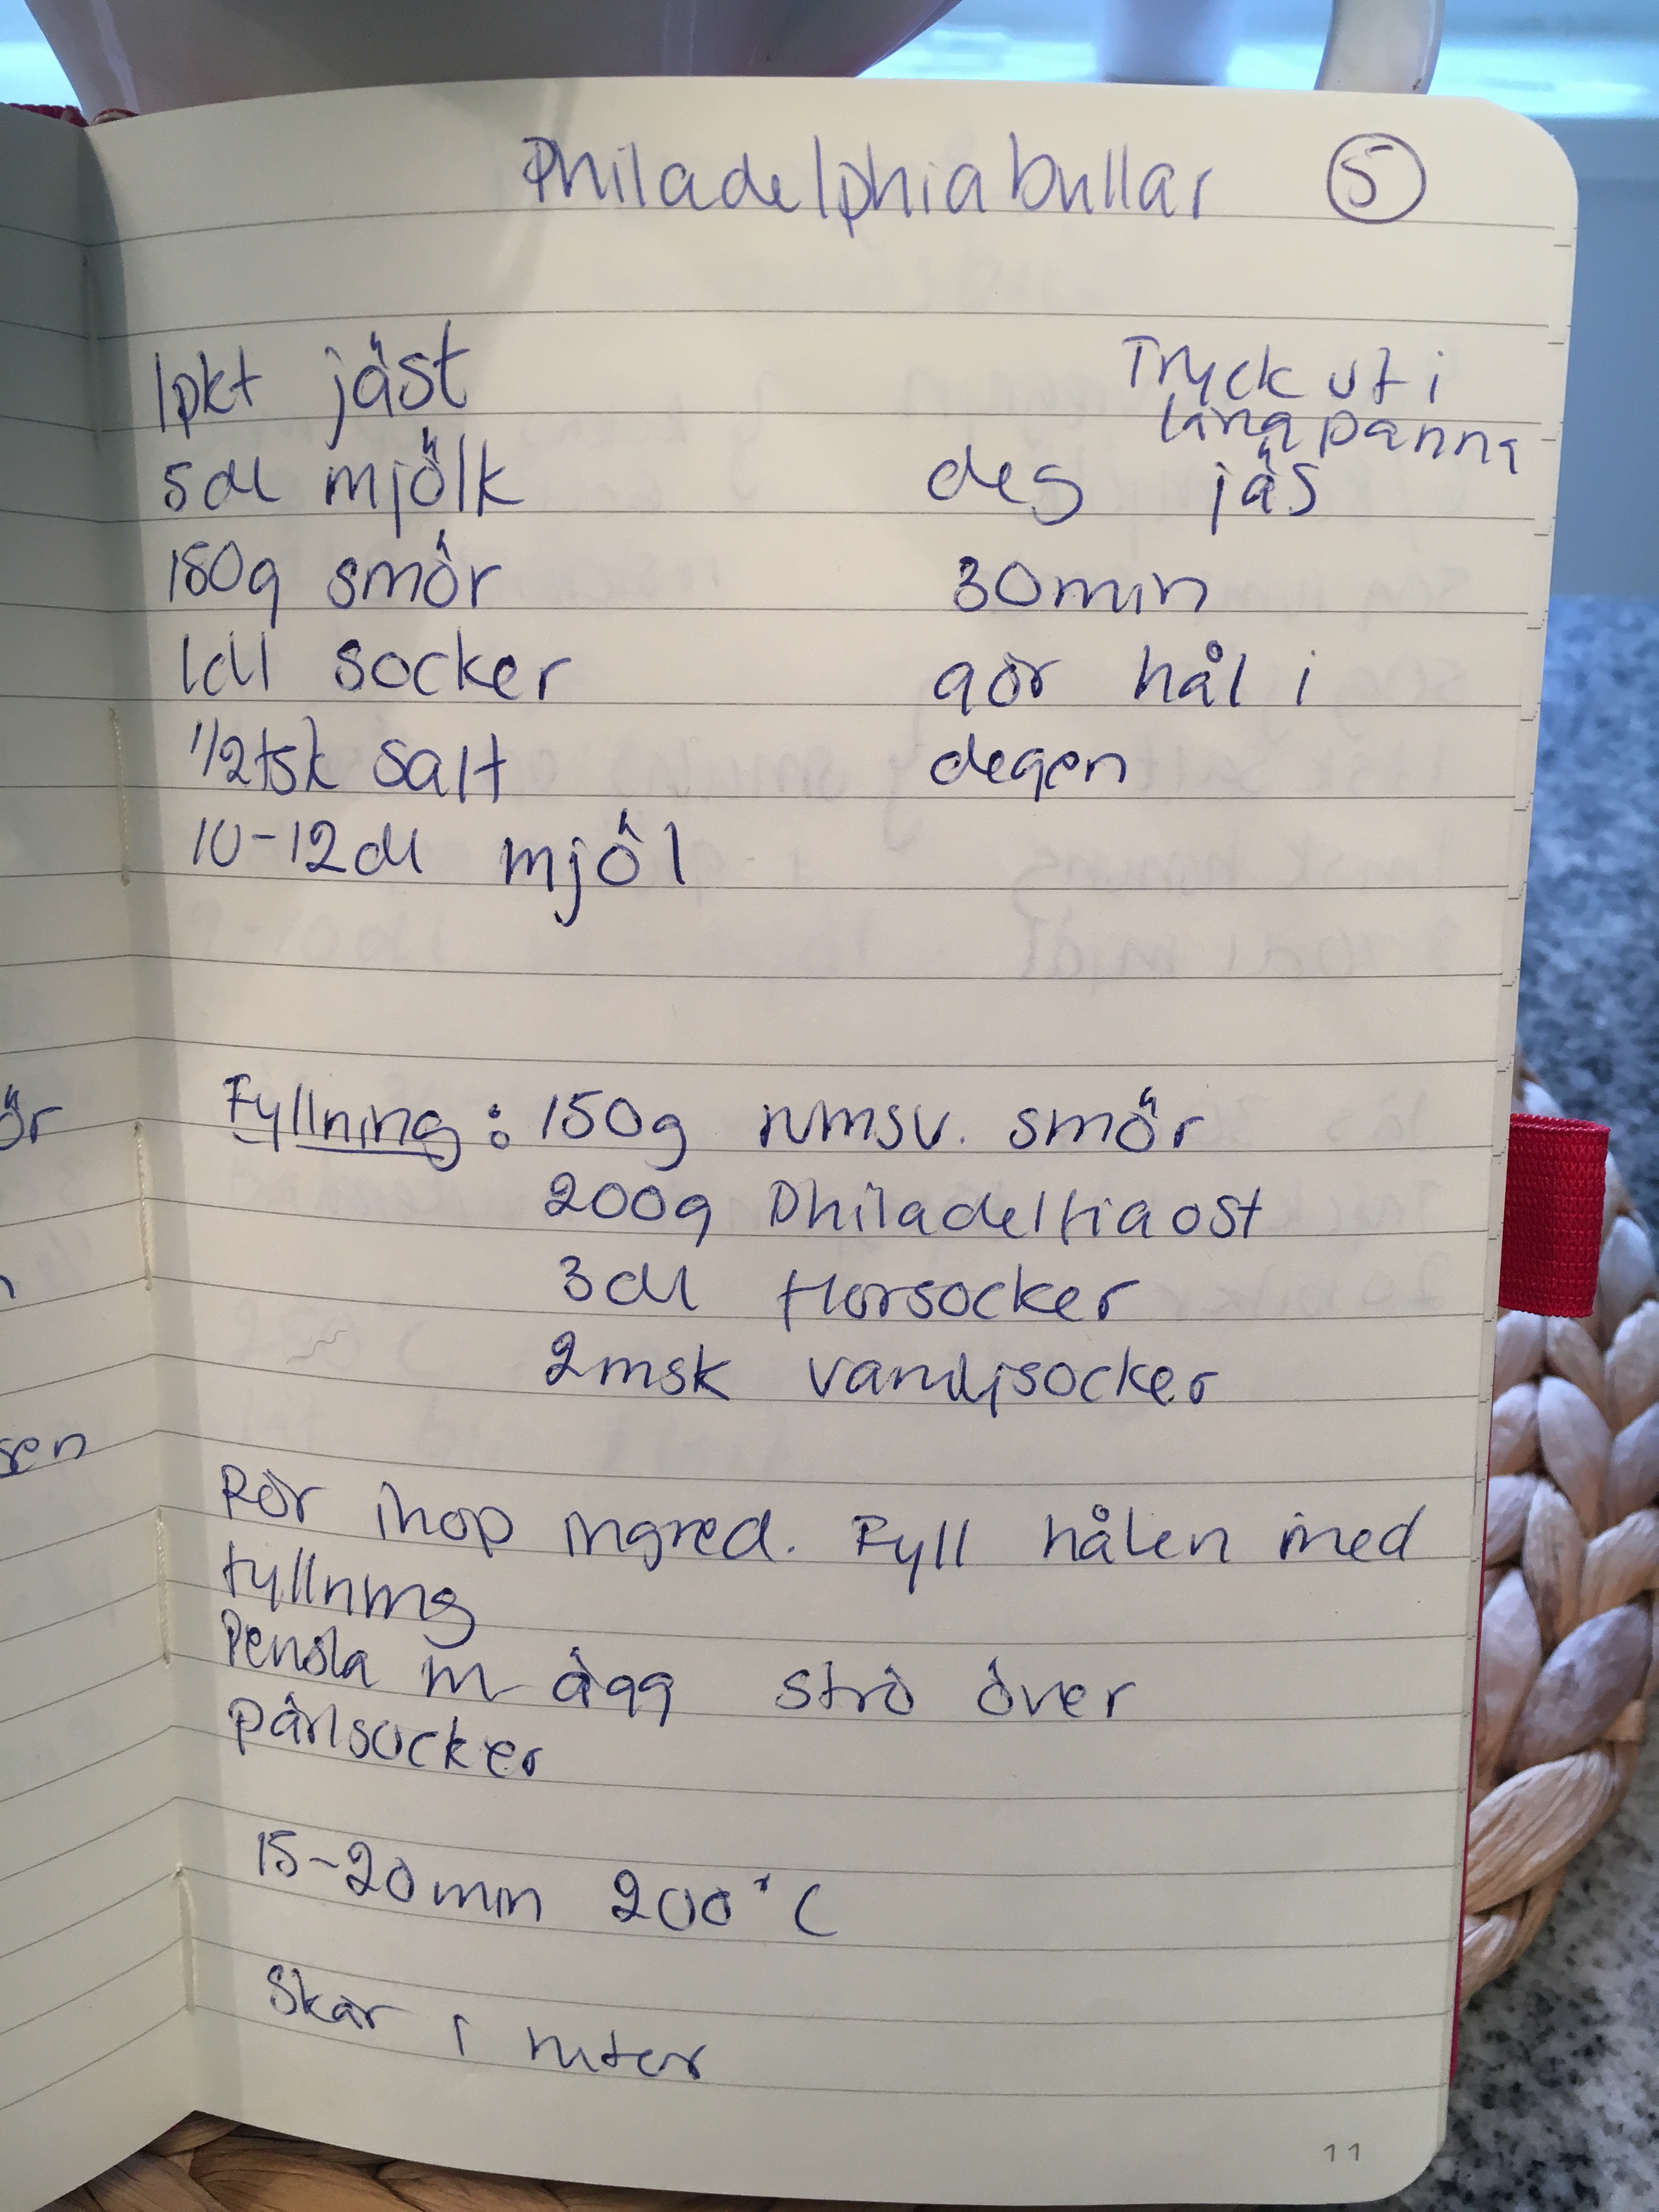 Philadelphiabullar 5
1pkt jäst
5dl mjölk
150g smör
1dl socker
1/2tsk salt
10-12dl mjöl
Tryck ut i
långpanna
deg jäs
30min
gör hål i
degen
Fyllning: 150g rumsv. smör
200g Philadelfiaost
3dl florsocker
2msk vaniljsocker
Rör ihop ingred. Fyll hålen med
fyllning
Pensla m ägg strö över
pärlsocker
15-20min 200°C
Skär i rutor
11
ör
sen